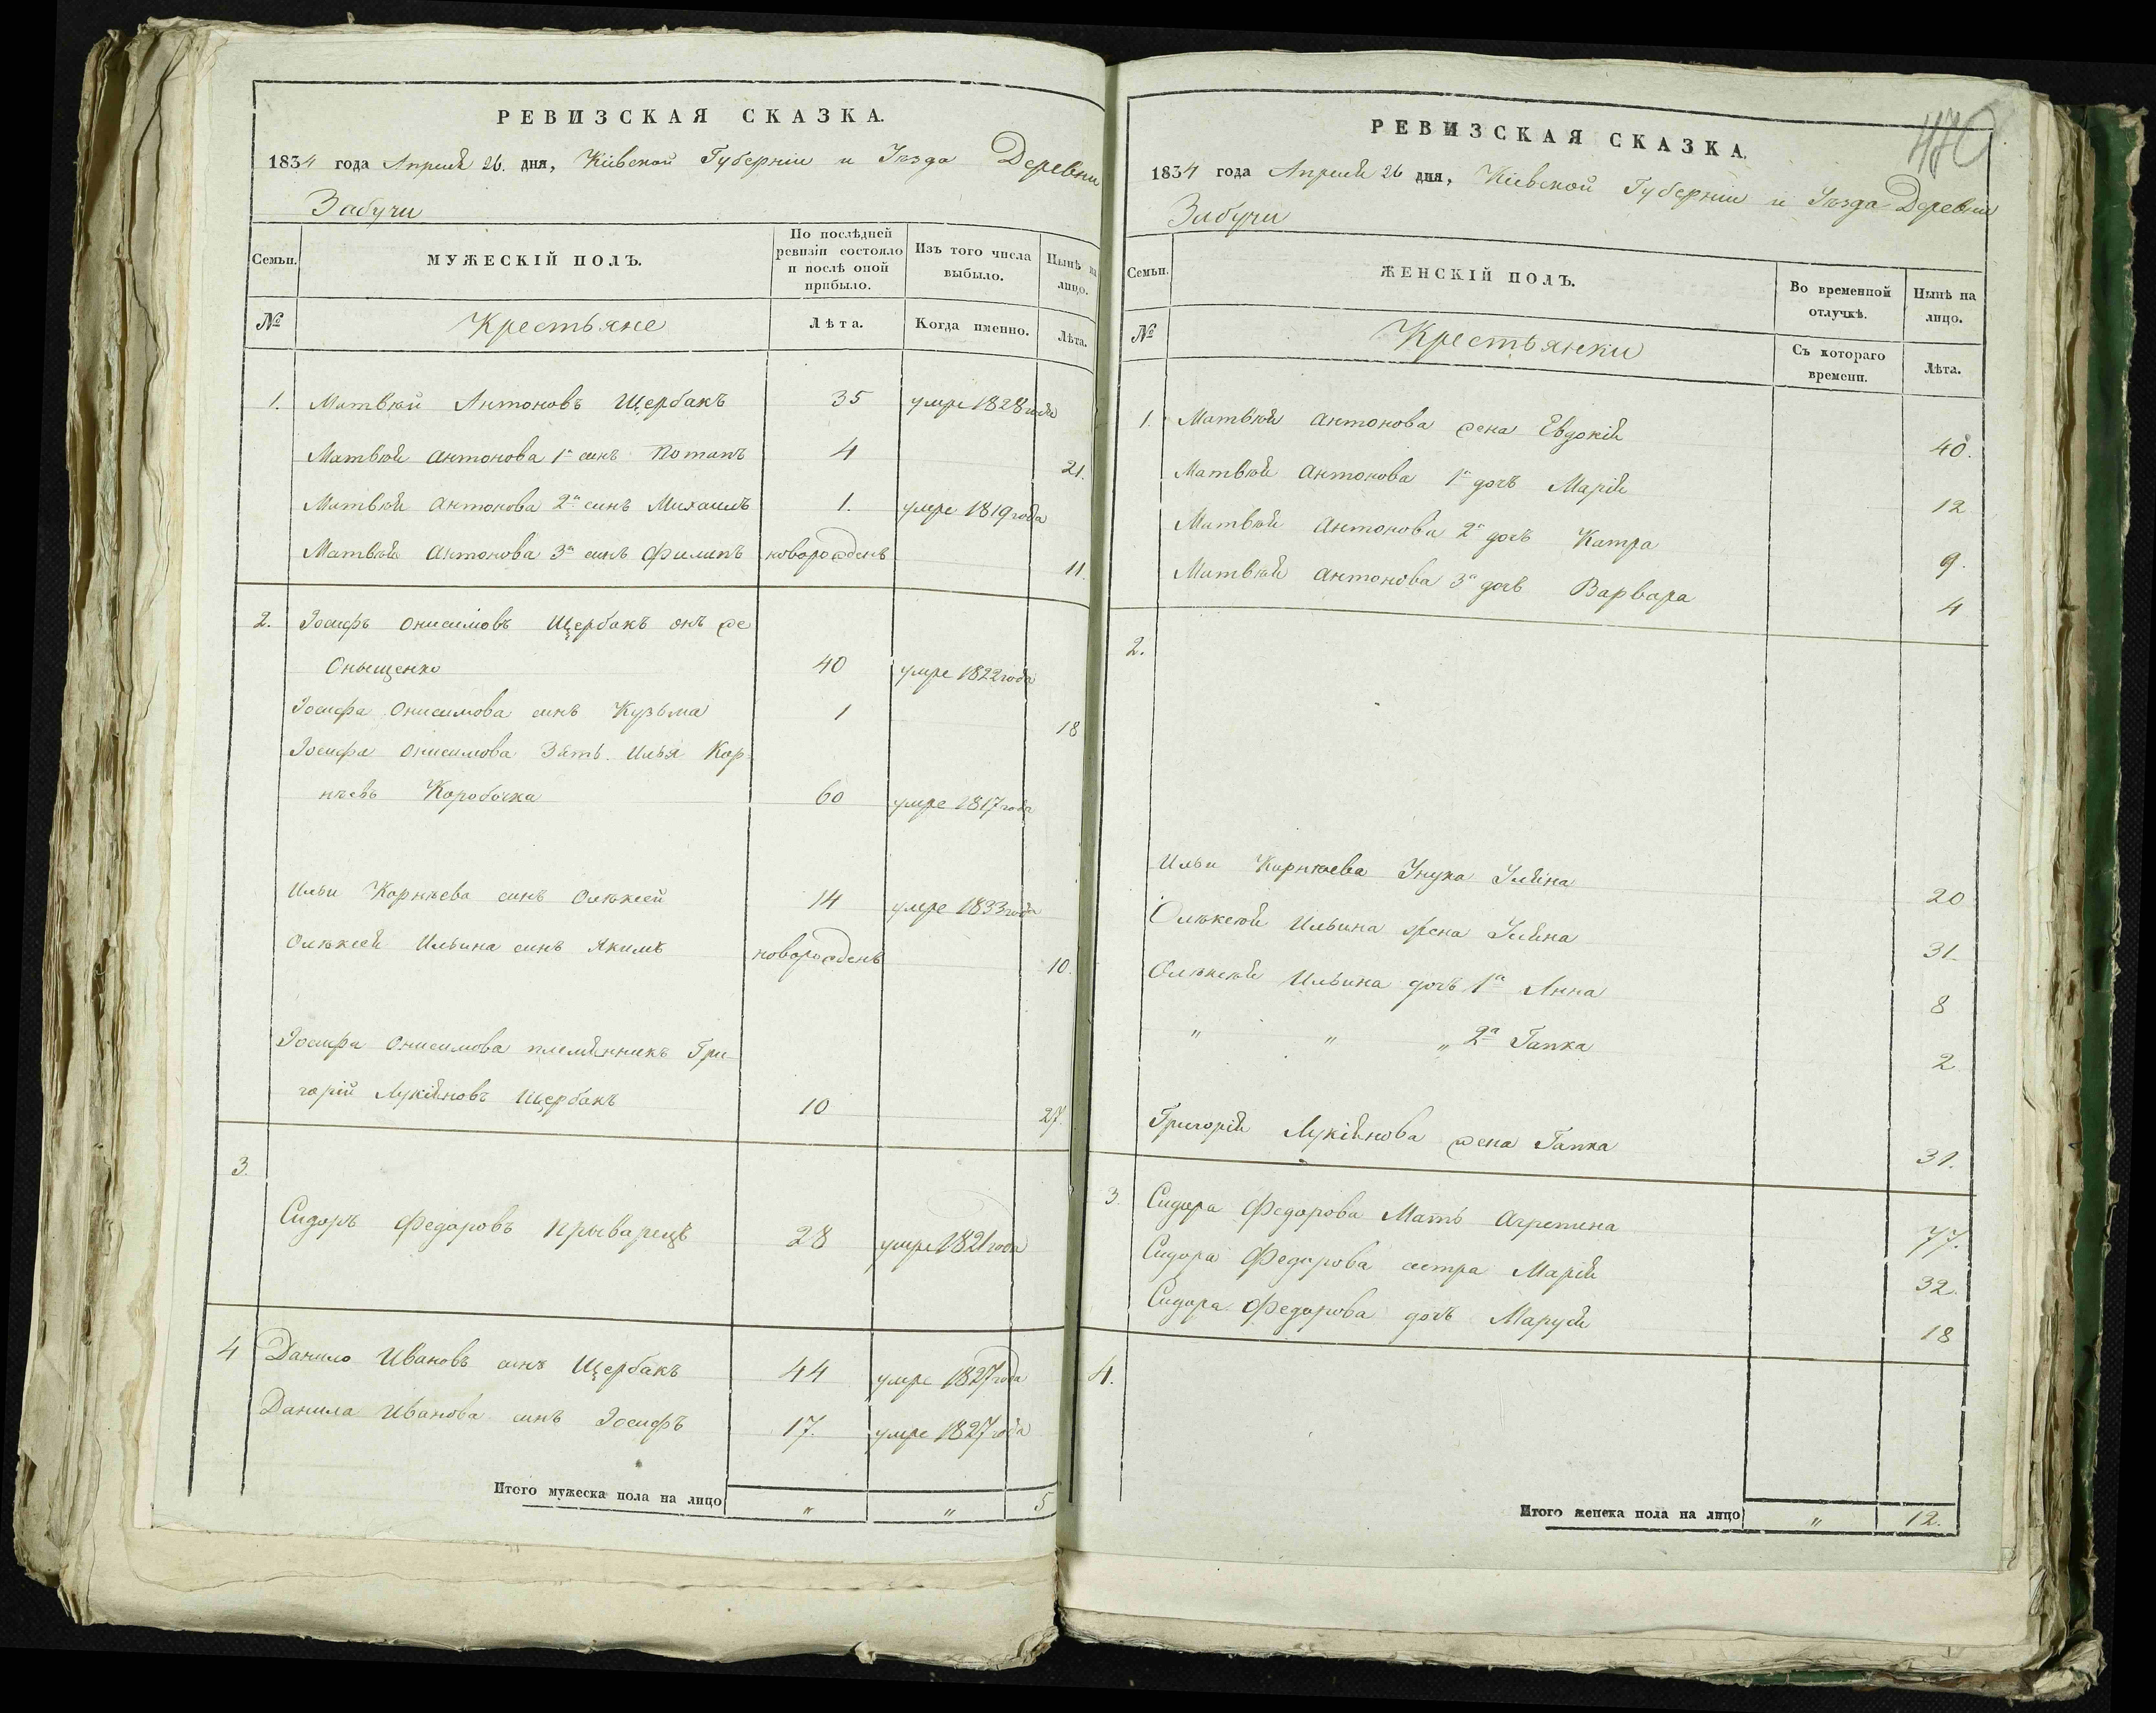 РЕВИЗСКАЯ СКАЗКА.
1834 года Апрѣля 26. дня, Кіевской Губерніи и Уѣзда Деревни
Забучи
Семьи.
МУЖЕСКІЙ ПОЛЪ.
По послѣдней ревизіи состояло и послѣ оной прибыло.
Изъ того числа выбыло.
Нынѣ на лицо.
№
Крестьяне
Лѣта.
Когда именно.
Лѣта.
1. Матвѣй Антоновъ Щербакъ 35 умре 1828 года
Матвѣя Антонова 1й синъ Потапъ 4 21.
Матвѣя Антонова 2й синъ Михаилъ 1. умре 1819 года
Матвѣя Антонова 3й синъ Филипъ новорожденъ 11.
2. Іосифъ Онисимовъ Щербакъ онъ же
Онищенко 40 умре 1822 года
Іосифа Онисимова синъ Кузьма 1 18
Іосифа Онисимова Зять Илья Кор-
нѣевъ Коробочка 60 умре 1817 года
Ильи Корнѣева синъ Олѣксей 14 умре 1833 года
Олѣксея Ильина синъ Якимъ новорожденъ 10.
Іосифа Онисимова племянникъ Гри-
горій Лукіяновъ Щербакъ 10 27.
3.
Сидоръ Федоровъ Прываръ 28 умре 1821 года
4 Данило Ивановъ синъ Щербакъ 44 умре 1827 года
Данила Иванова синъ Іосифъ 17. умре 1827 года
Итого мужеска пола на лицо " " 5
470
РЕВИЗСКАЯ СКАЗКА.
1834 года Апрѣля 26 дня, Кіевской Губерніи и Уѣзда Деревни
Забучи
Семьи.
ЖЕНСКІЙ ПОЛЪ.
Во временной отлучкѣ.
Нынѣ на лицо.
№
Крестьянки
Съ котораго времени.
Лѣта.
1. Матвѣя Антонова жена Евдокія 40.
Матвѣя Антонова 1я дочь Марія 12
Матвѣя Антонова 2я дочь Катра 9.
Матвѣя Антонова 3я дочь Варвара 4
2.
Ильи Корнѣева Унука Уляна 20
Олѣксея Ильина жена Уляна 31.
Олѣксея Ильина дочь 1я Анна 8
" " " 2я Гапка 2
Григорія Лукіянова жена Гапка 31.
3. Сидора Федорова Мать Агрепина 77.
Сидора Федорова сестра Марія 32.
Сидора Федорова дочь Маруся 18
4.
Итого женска пола на лицо " 12.